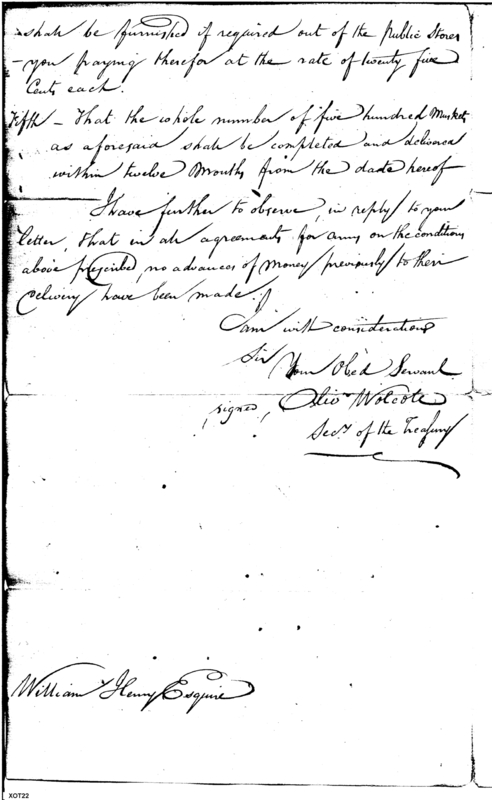 shall be furnished if required out of the public Stores
- you paying therefor at the rate of twenty five
Cents each.
Fifth - That the whole number of five hundred Muskets
as aforesaid shall be completed and delivered
within twelve Months from the date hereof
I have further to observe, in reply to your
letter, that in all agreements for arms on the conditions
above prescribed, no advances of money previously to their
delivery have been made.
I am with consideration
Sir
Your Obed Servant.
signed, Oliv. Wolcott
Secy of the Treasury
William Henry Esquire
XOT22